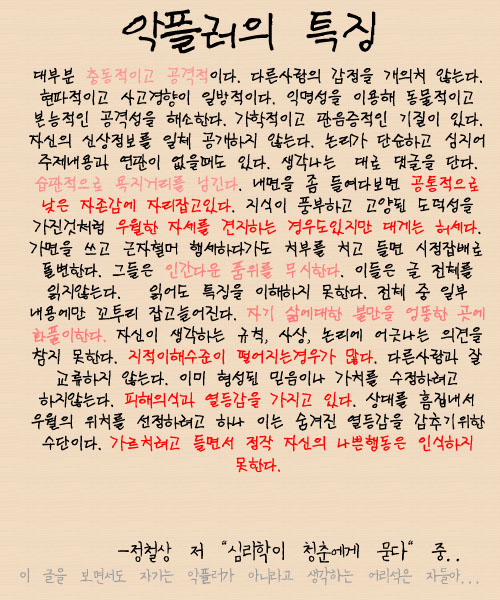 악플러의 특징
대부분 충동적이고 공격적이다. 다른사람의 감정을 개의치 않는다.
현파적이고 사고경향이 일방적이다. 익명성을 이용해 동물적이고
본능적인 공격성을 해소한다. 가학적이고 관음증적인 기질이 있다.
자신의 신상정보를 일체 공개하지 않는다. 논리가 단순하고 심지어
주제내용과 연관이 없을때도 있다. 생각나는 대로 댓글을 단다.
습관적으로 욕지거리를 남긴다. 내면을 좀 들여다보면 공통적으로
낮은 자존감에 자리잡고있다. 지식이 풍부하고 고양된 도덕성을
가진것처럼 우월한 자세를 견지하는 경우도있지만 대게는 허세다.
가면을 쓰고 근자혈머 행세하다가도 치부를 치고 들면 시정잡배로
돌변한다. 그들은 인간다운 품위를 무시한다. 이들은 글 전체를
읽지않는다. 읽어도 특징을 이해하지 못한다. 전체 중 일부
내용에만 꼬투리 잡고늘어진다. 자기 삶에대한 불만을 엉뚱한 곳에
화풀이한다. 자신이 생각하는 규칙, 사상, 논리에 어긋나는 의견을
참지 못한다. 지적이해수준이 떨어지는경우가 많다. 다른사람과 잘
교류하지 않는다. 이미 형성된 믿음이나 가치를 수정하려고
하지않는다. 피해의식과 열등감을 가지고 있다. 상대를 흠집내서
우월의 위치를 선점하려고 하나 이는 숨겨진 열등감을 감추기위한
수단이다. 가르치려고 들면서 정작 자신의 나쁜행동은 인식하지
못한다.
-정철상 저 "심리학이 청춘에게 묻다" 중..
이 글을 보면서도 자기는 악플러가 아니라고 생각하는 어리석은 자들아...